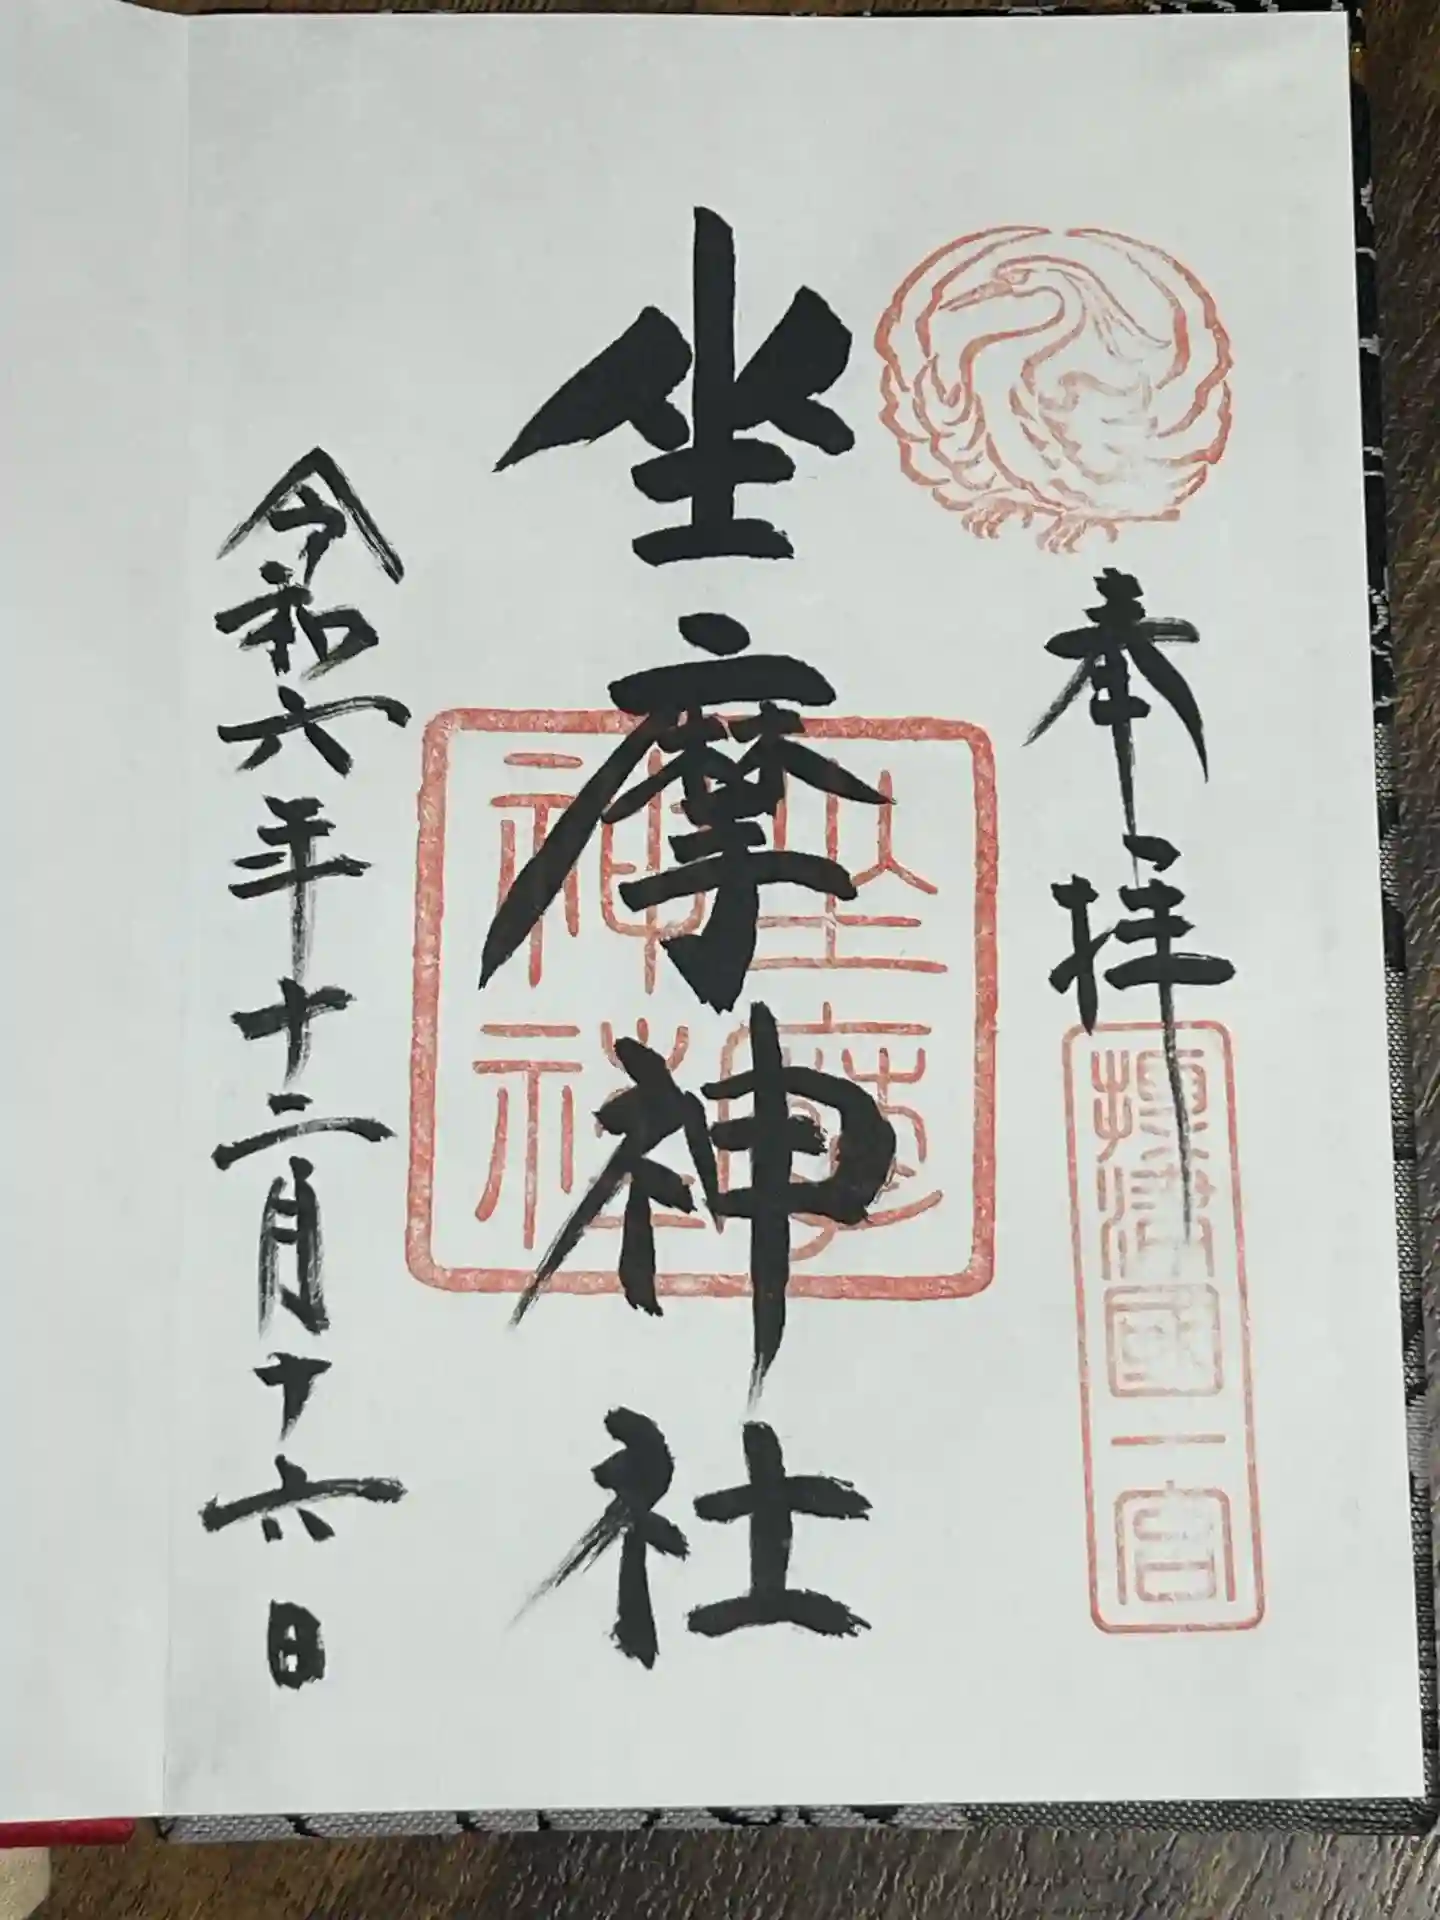 奉拝
攝津國一宮
坐摩神社
坐摩神社
令和六年十二月十六日